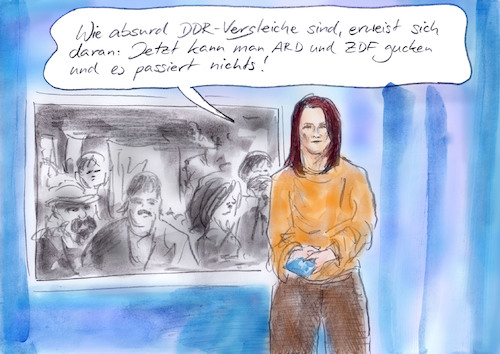 Wie absurd DDR-Vergleiche sind, erweist sich
daran: Jetzt kann man ARD und ZDF gucken
und es passiert nichts!